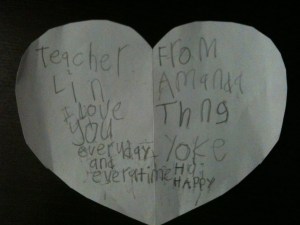 Teacher
Lin
I Love
You
everyday
and
everytime
From
Amanda
Thng
Yoke
Hoi
HAPPY